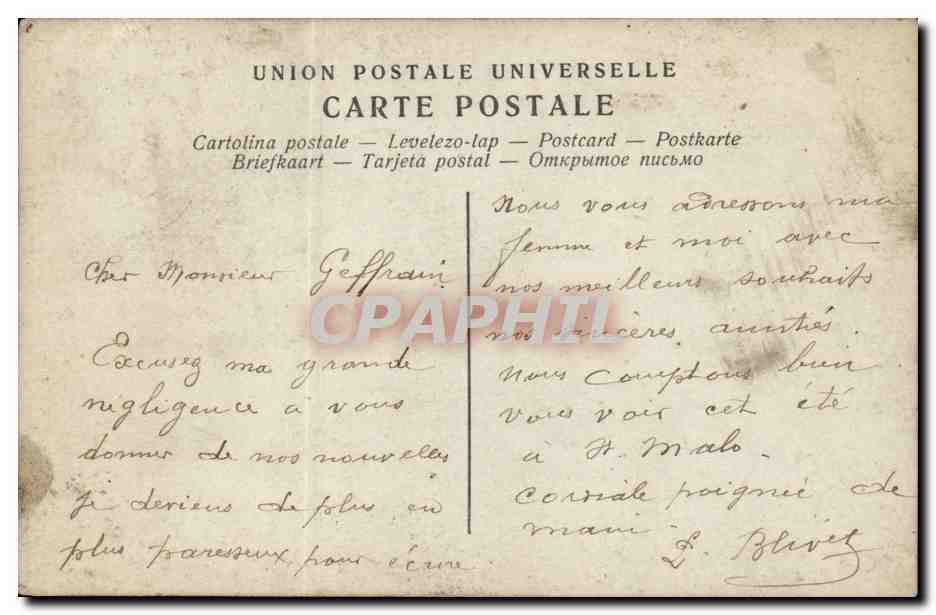 UNION POSTALE UNIVERSELLE
CARTE POSTALE
Cartolina postale — Levelezo-lap — Postcard — Postkarte
Briefkaart — Tarjeta postal — Открытое письмо
Cher Monsieur Geffrain
Excusez ma grande
négligence a vous
donner de nos nouvelles
je deviens de plus en
plus paresseux pour écrire
Nous vous adressons ma
femme et moi avec
nos meilleurs souhaits
nos sincères amitiés.
Nous comptons bien
vous voir cet été
à St. Malo.
Cordiale poignée de
main
L. Blivet
CPAPHIL